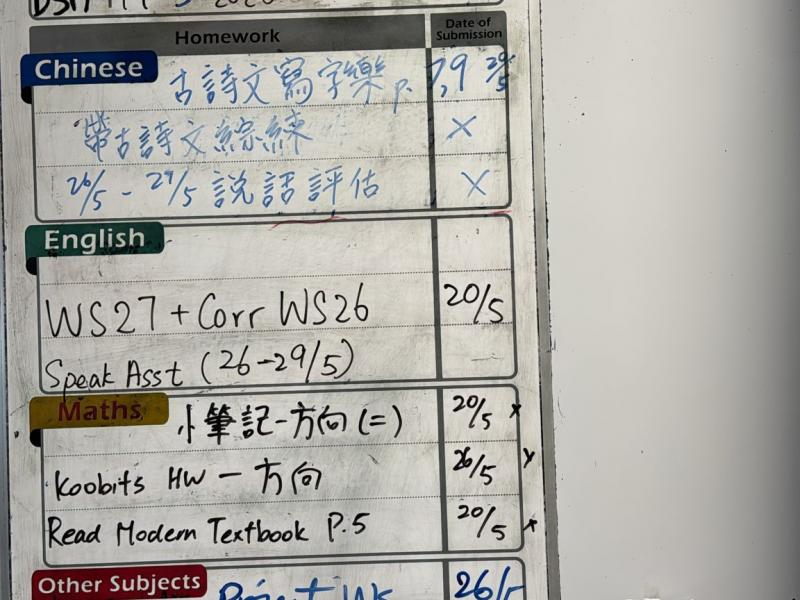 Homework Date of Submission
Chinese 古詩文寫字樂 p. 7,9 29/5
帶古詩文綜練 X
26/5 - 29/5 說話評估 X
English
WS27 + Corr WS26 20/5
Speak Asst (26-29/5)
Maths 小筆記-方向(二) 20/5 x
Koobits HW - 方向 26/5 x
Read Modern Textbook P.5 20/5 x
Other Subjects 26/5